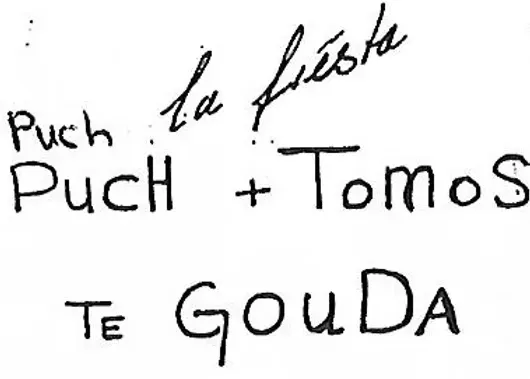 la fiësta
Puch
PUCH + TOMOS
TE GOUDA